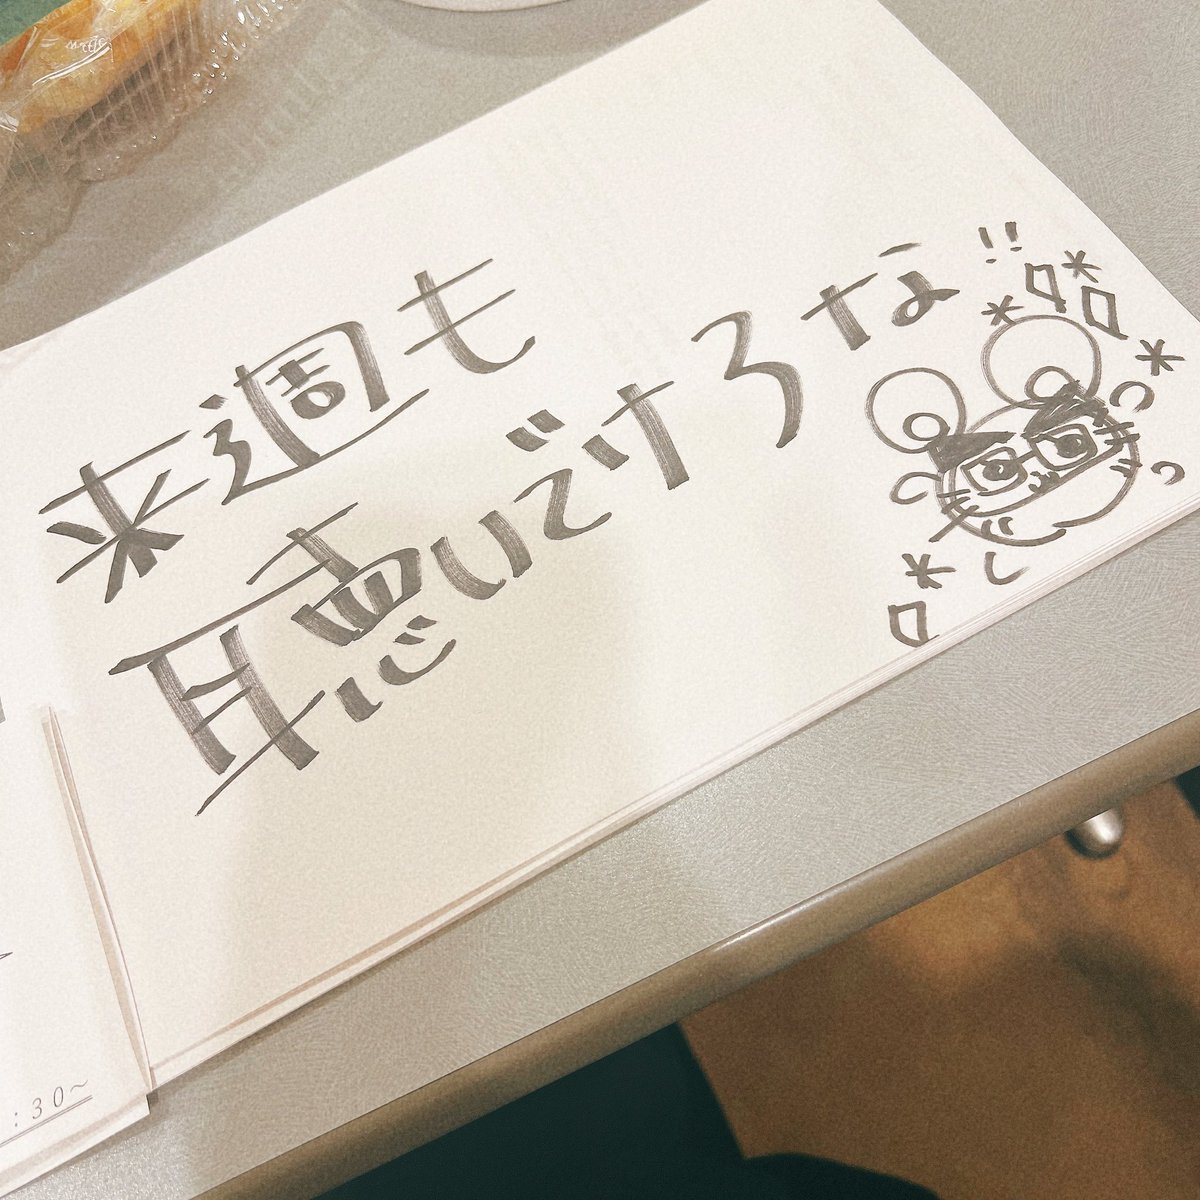 来週も
聴いでけろなぃ!!
:30~